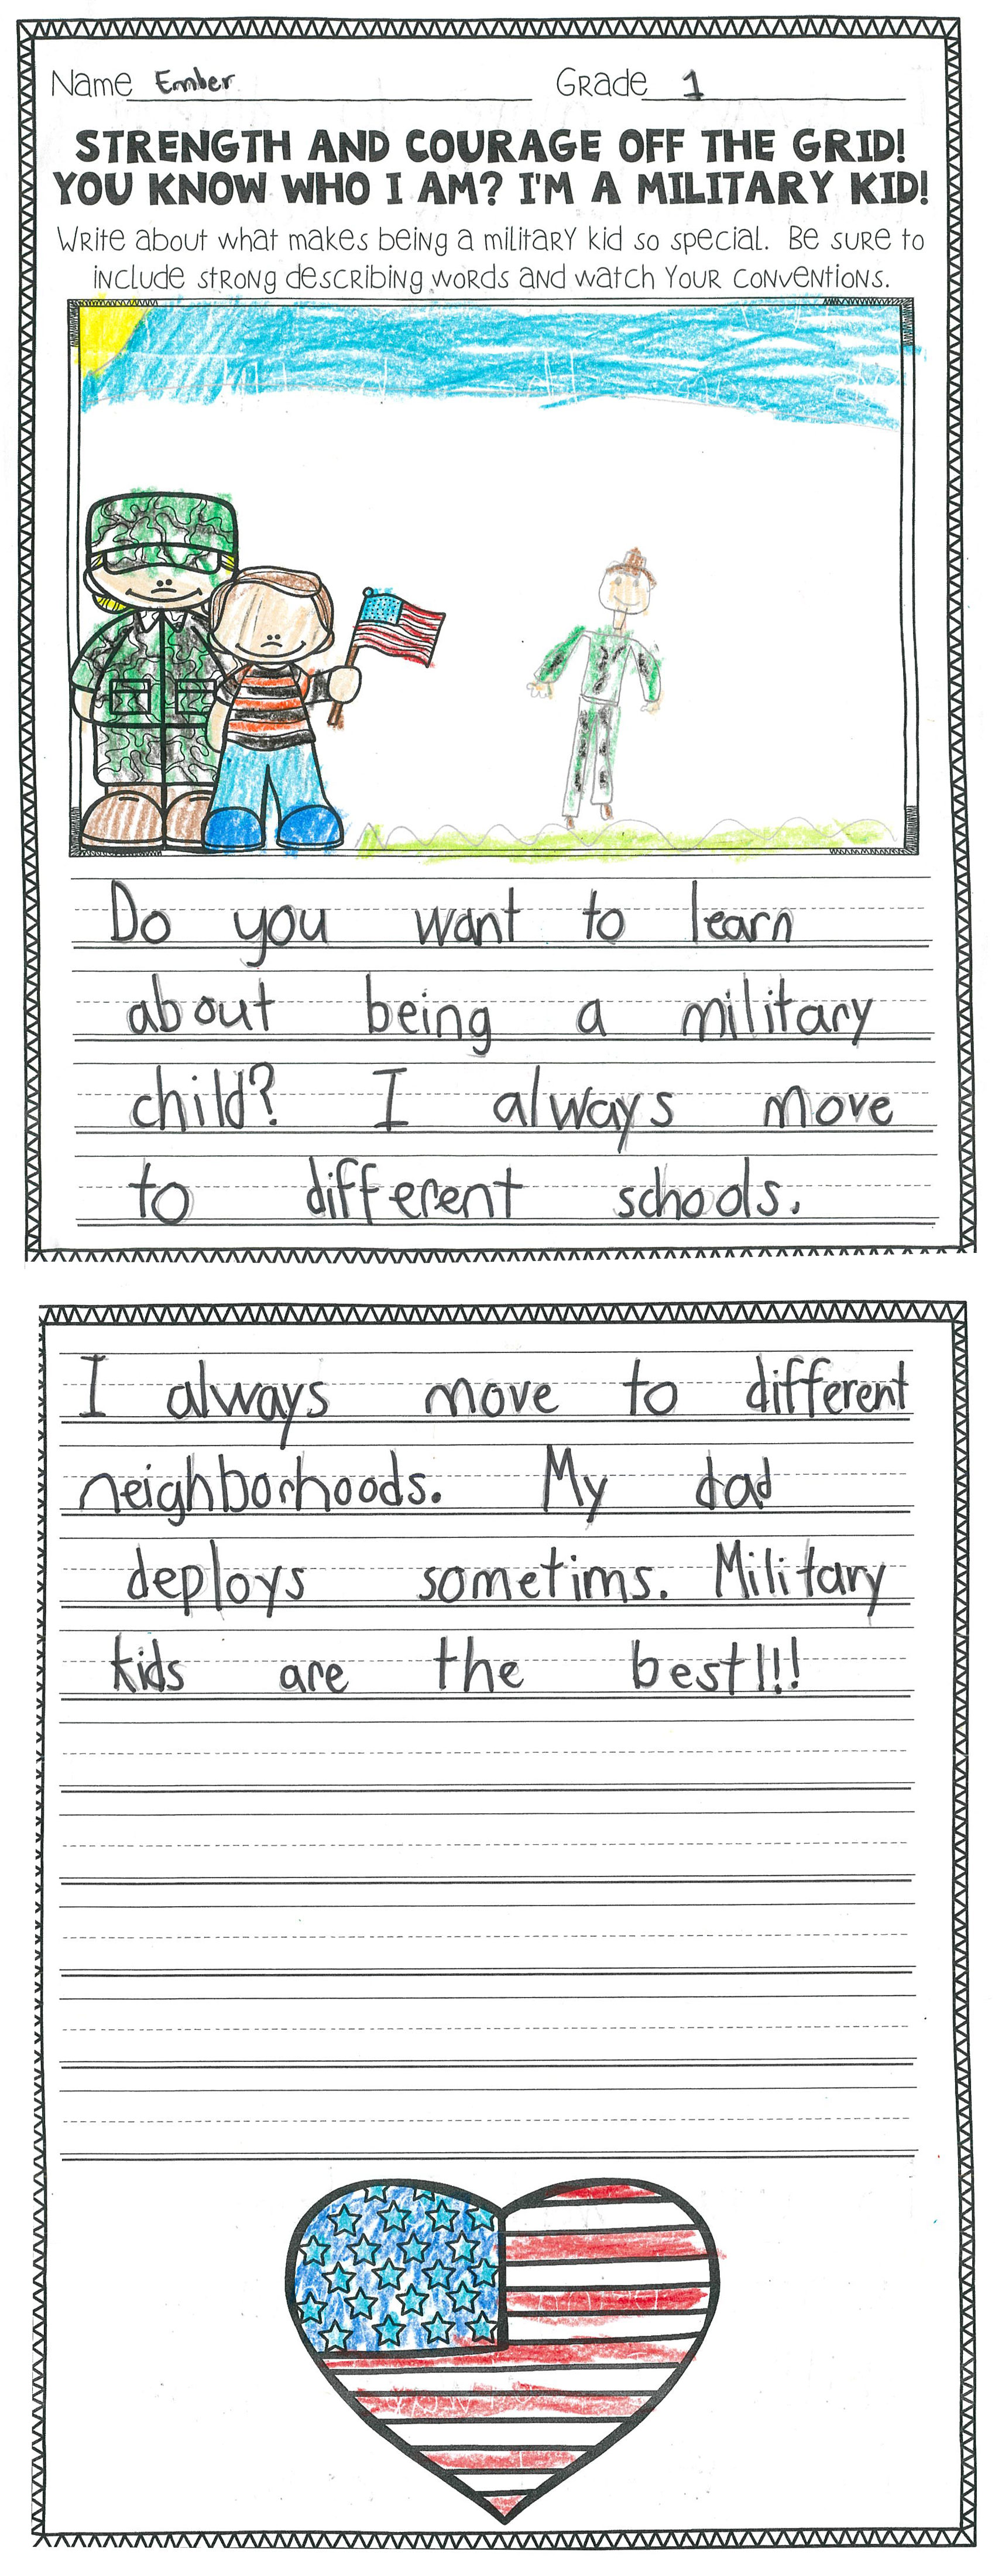 Name Ember Grade 1
STRENGTH AND COURAGE OFF THE GRID!
YOU KNOW WHO I AM? I'M A MILITARY KID!
Write about what makes being a military kid so special. Be sure to
include strong describing words and watch your conventions.
Do you want to learn
about being a military
child? I always move
to different schools.
I always move to different
neighborhoods. My dad
deploys sometims. Military
kids are the best!!!